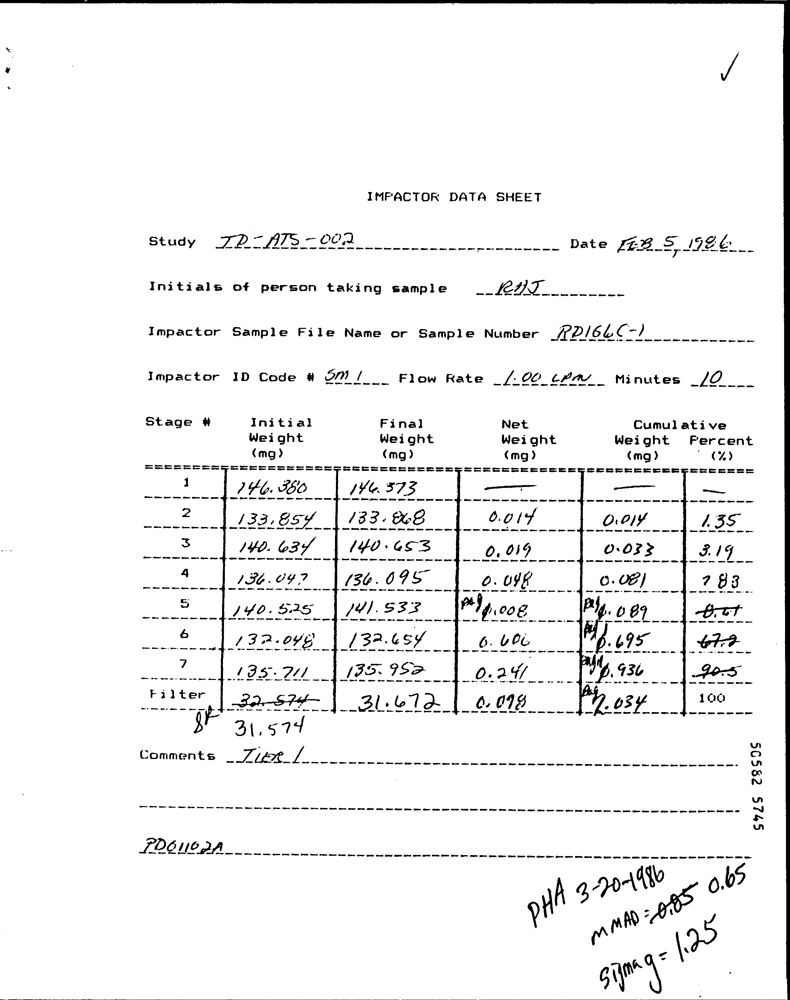 ✓
IMPACTOR DATA SHEET
Study TD-ATS-002 Date FEB 5, 1986
Initials of person taking sample RHJ
Impactor Sample File Name or Sample Number
Impactor ID Code # SM 1 Flow Rate 1.00 LPM Minutes 10
Stage # Initial Final Net Cumulative
Weight Weight Weight Weight Percent
(mg) (mg) (mg) (mg) (%)
1 146.380 146.373 — — —
2 133.854 133.868 0.014 0.014 1.35
3 140.634 140.653 0.019 0.033 3.19
4 136.047 136.095 0.048 0.081 7 83
5 140.525 141.533 .008 .089
6 132.048 132.654 0.606 .695 67.2
7 135.711 135.952 0.241 .936 90.5
Filter 32.574 31.672 0.098 .034 100
31.574
Comments TIER 1
PD01102A
PHA 3-20-1986
MMAD = 0.85 0.65
sigma g = 1.25
50582 5745